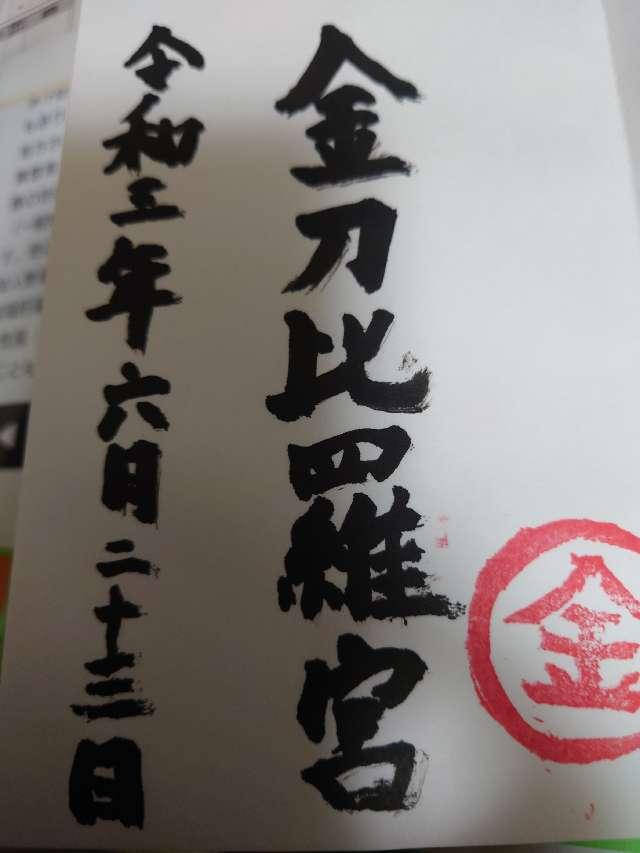 金刀比羅宮
令和三年六月二十三日
金